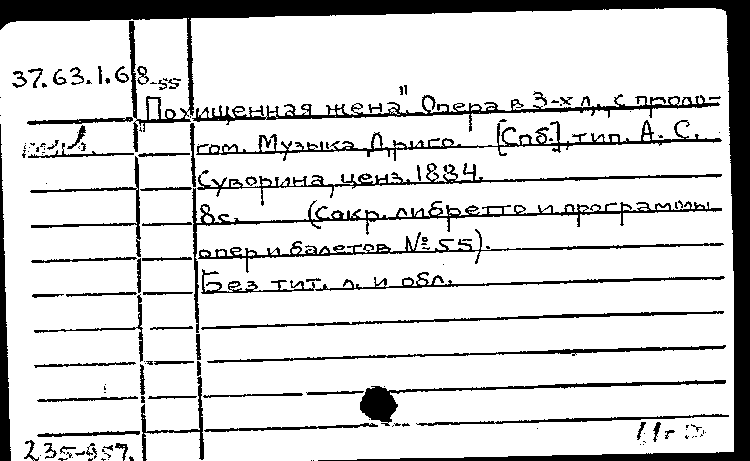 37.63.1.68-55
"Похищенная жена". Опера в 3-х л., с проло-
гом. Музыка Дриго. [Спб.], тип. А. С.
Суворина, ценз. 1884.
8с. (Сокр. либретто и программы
опер и балетов № 55).
Без тит. л. и обл.
235-957.